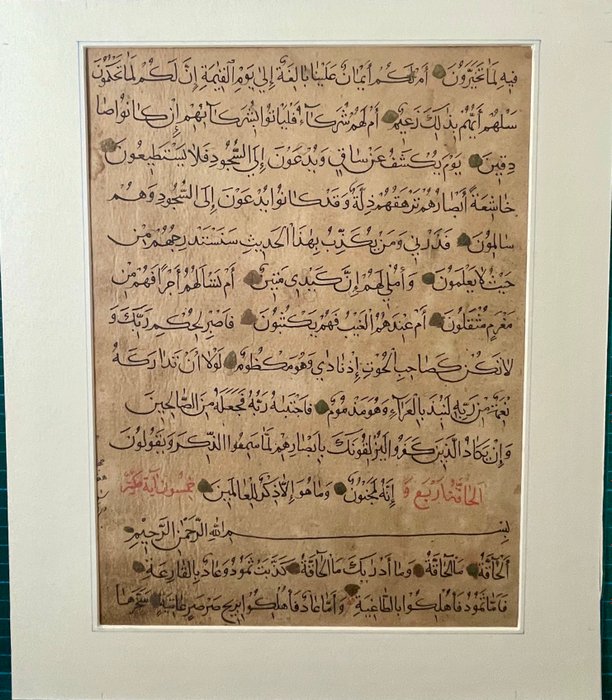 فِيهِ لَمَا تَخَيَّرُونَ أَمْ لَكُمْ أَيْمَانٌ عَلَيْنَا بَالِغَةٌ إِلَى يَوْمِ الْقِيَمَةِ إِنَّ لَكُمْ لَمَا تَحْكُمُونَ
سَلْهُمْ أَيُّهُمْ بِذَلِكَ زَعِيمٌ أَمْ لَهُمْ شُرَكَاءُ فَلْيَأْتُوا بِشُرَكَائِهِمْ إِنْ كَانُوا صَا
دِقِينَ يَوْمَ يُكْشَفُ عَنْ سَاقٍ وَيُدْعَوْنَ إِلَى السُّجُودِ فَلَا يَسْتَطِيعُونَ
خَاشِعَةً أَبْصَارُهُمْ تَرْهَقُهُمْ ذِلَّةٌ وَقَدْ كَانُوا يُدْعَوْنَ إِلَى السُّجُودِ وَهُمْ
سَالِمُونَ فَذَرْنِي وَمَنْ يُكَذِّبُ بِهَذَا الْحَدِيثِ سَنَسْتَدْرِجُهُمْ مِنْ
حَيْثُ لَا يَعْلَمُونَ وَأُمْلِي لَهُمْ إِنَّ كَيْدِي مَتِينٌ أَمْ تَسْأَلُهُمْ أَجْرًا فَهُمْ مِنْ
مَغْرَمٍ مُثْقَلُونَ أَمْ عِنْدَهُمُ الْغَيْبُ فَهُمْ يَكْتُبُونَ فَاصْبِرْ لِحُكْمِ رَبِّكَ وَ
لَا تَكُنْ كَصَاحِبِ الْحُوتِ إِذْ نَادَى وَهُوَ مَكْظُومٌ لَوْلَا أَنْ تَدَارَكَهُ
نِعْمَةٌ مِنْ رَبِّهِ لَنُبِذَ بِالْعَرَاءِ وَهُوَ مَذْمُومٌ فَاجْتَبَاهُ رَبُّهُ فَجَعَلَهُ مِنَ الصَّالِحِينَ
وَإِنْ يَكَادُ الَّذِينَ كَفَرُوا لَيُزْلِقُونَكَ بِأَبْصَارِهِمْ لَمَّا سَمِعُوا الذِّكْرَ وَيَقُولُونَ
إِنَّهُ لَمَجْنُونٌ وَمَا هُوَ إِلَّا ذِكْرٌ لِلْعَالَمِينَ
بِسْمِ اللَّهِ الرَّحْمَنِ الرَّحِيمِ
الْحَاقَّةُ مَا الْحَاقَّةُ وَمَا أَدْرَيكَ مَا الْحَاقَّةُ كَذَّبَتْ ثَمُودُ وَعَادٌ بِالْقَارِعَةِ
فَأَمَّا ثَمُودُ فَأُهْلِكُوا بِالطَّاغِيَةِ وَأَمَّا عَادٌ فَأُهْلِكُوا بِرِيحٍ صَرْصَرٍ عَاتِيَةٍ سَخَّرَهَا